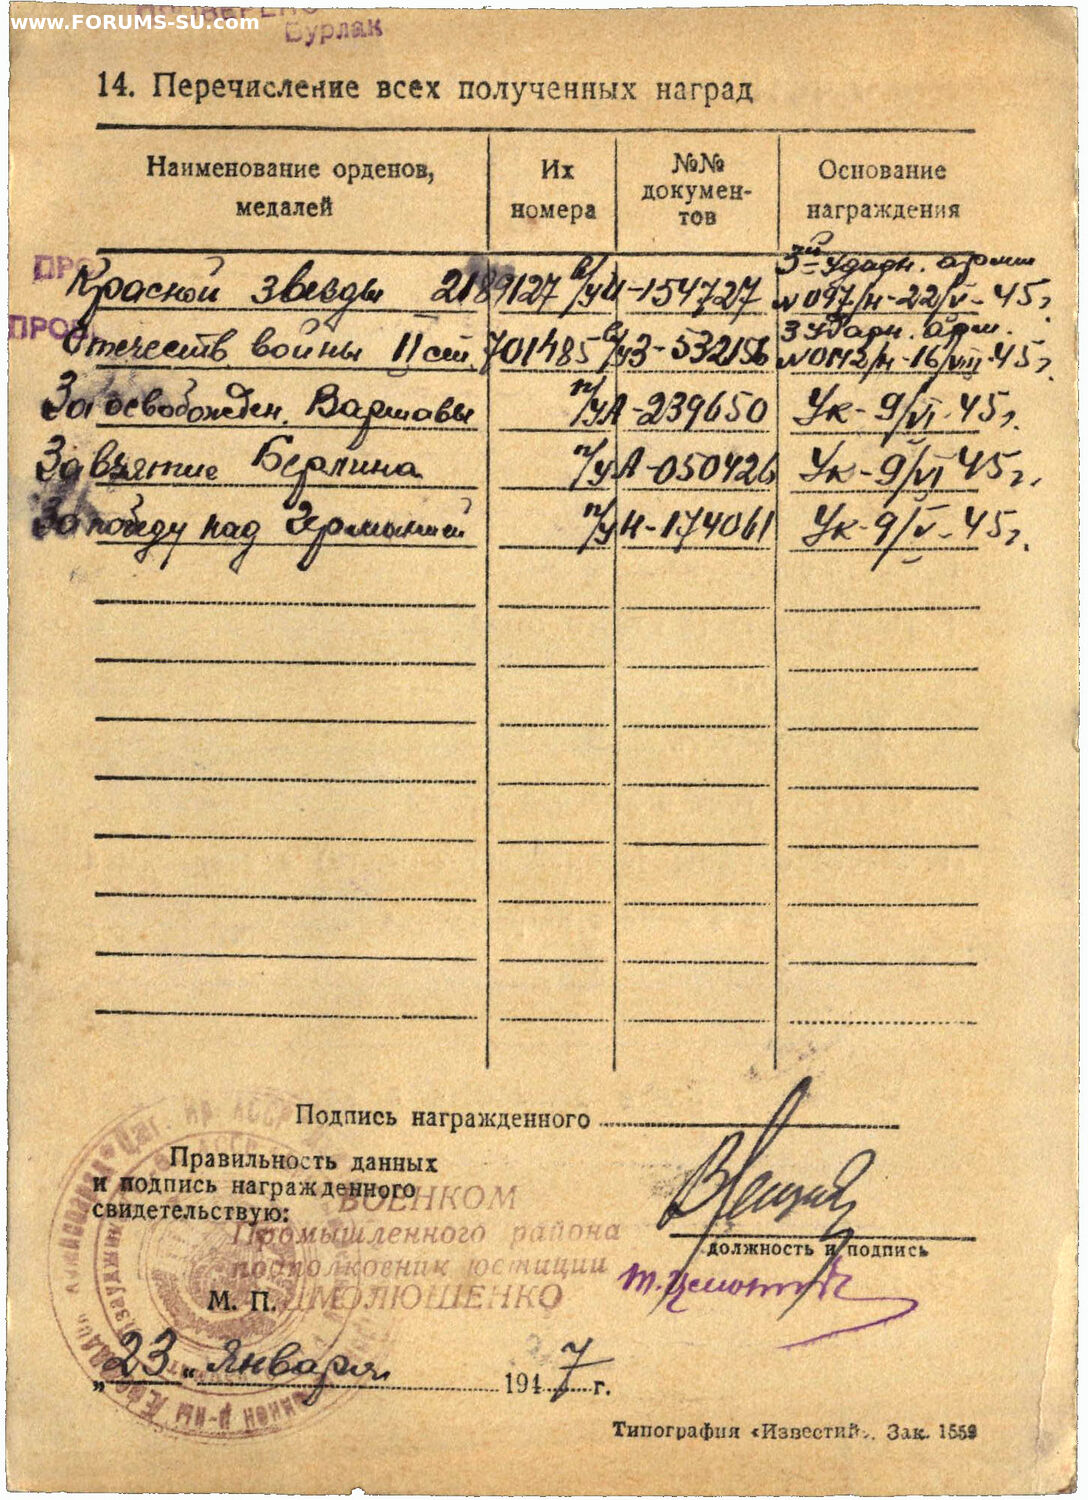 www.FORUMS-SU.com
Бурлак
14. Перечисление всех полученных наград
Наименование орденов, медалей
Их номера
№№ документов
Основание награждения
ПРО
ПРОВ
Красной звезды 2189127 в/у И-154727 3-й Ударн. армии №097/н-22/V-45г.
Отечеств войны II ст. 701485 в/у З-532156 3 Ударн. арм. №0142/н-16/VIII-45г.
За освобожден. Варшавы п/у А-239650 Ук-9/VI-45г.
За взятие Берлина п/у А-050426 Ук-9/VI 45г.
За победу над Германией п/у Н-174061 Ук-9/V-45г.
Подпись награжденного
Правильность данных
и подпись награжденного
свидетельствую:
ВОЕНКОМ
Промышленного района
подполковник юстиции
должность и подпись
М. П.
„23“ Января 1947 г.
Типография «Известий». Зак. 1559